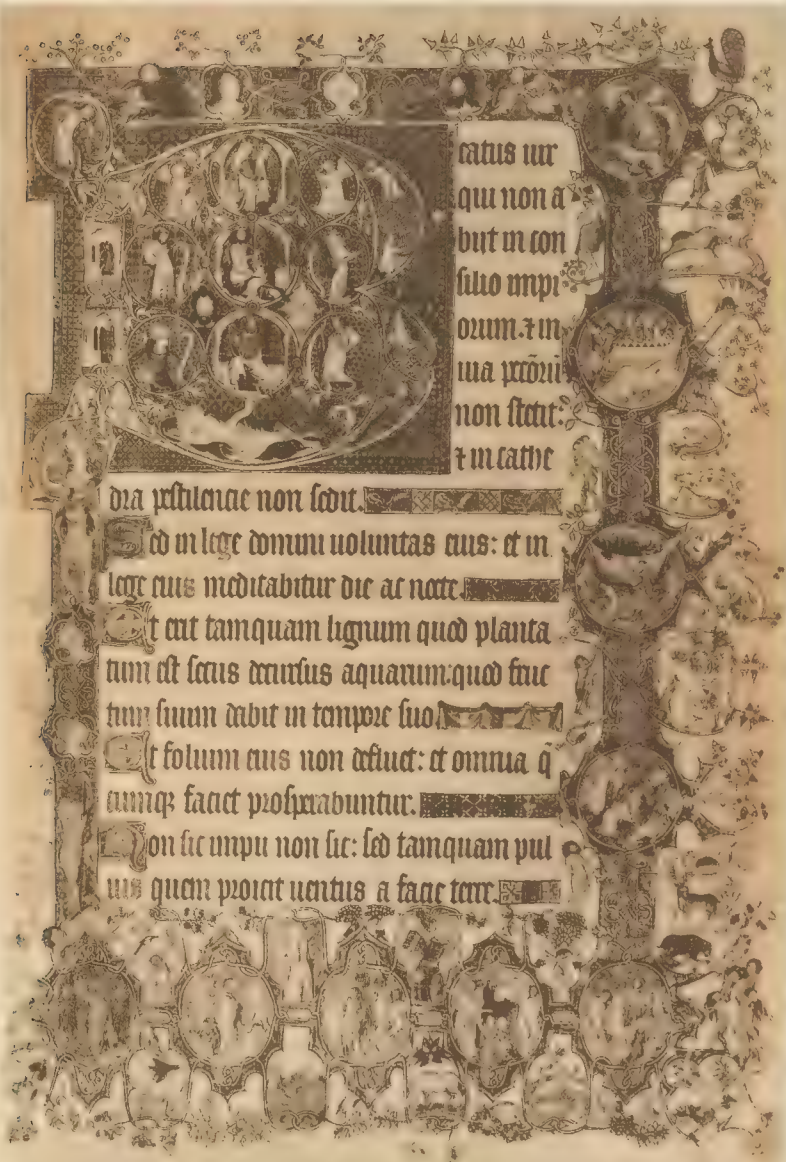 eatus uir
qui non a
biit in con
silio impi
orum. ⁊ in
uia pccōrū
non stetit:
⁊ in cathe
dra pestilencie non sedit.
Sed in lege domini uoluntas eius: et in
lege eius meditabitur die ac nocte.
Et erit tamquam lignum quod planta
tum est secus decursus aquarum: quod fruc
tum suum dabit in tempore suo.
Et folium eius non defluet: et omnia q̄
cumqꝫ faciet prosperabuntur.
Non sic impii non sic: sed tamquam pul
uis quem proicit uentus a facie terre.